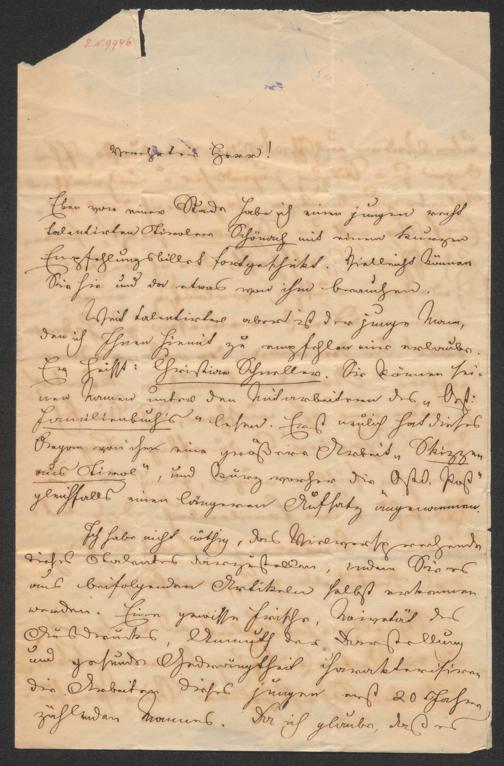 J.N. 9946
Verehrter Herr!
Eben vor einer Stunde habe ich einen jungen recht
talentirten Tiroler Schönach mit einem kurzen
Empfehlungsbillet fortgeschickt. Vielleicht können
Sie hie und da etwas von ihm brauchen.
Weit talentirter aber ist der junge Mann,
den ich Ihnen hiemit zu empfehlen mir erlaube.
Er heißt: Christian Schneller. Sie können sei-
nen Namen unter den Mitarbeitern des „Öst:
Familienbuchs" lesen. Erst neulich hat dieses
Organ von ihm eine größere Arbeit „Skizzen
aus Tirol", und kurz vorher die „Ostd. Post"
gleichfalls einen längeren Aufsatz angenommen.
Ich habe nicht nöthig, das Vielversprechende
dieses Talentes darzustellen, indem Sie es
aus beifolgenden Artikeln selbst erkennen
werden. Eine gewisse Frische, Naivetät des
Ausdruckes, Anmuth der Darstellung
und gesunde Gedrängtheit charakterisiren
die Arbeiten dieses jungen erst 20 Jahre
zählenden Mannes. Da ich glaube, daß es